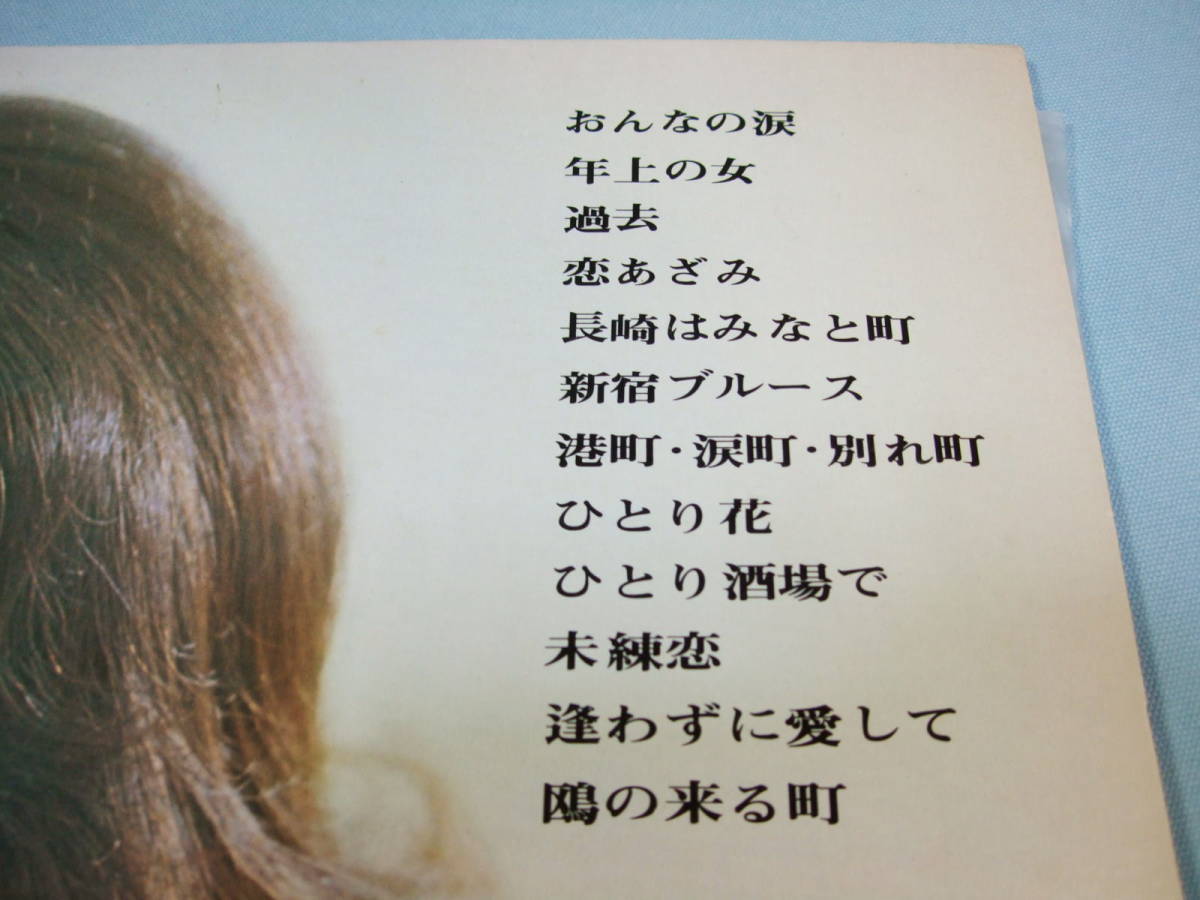 おんなの涙
年上の女
過去
恋あざみ
長崎はみなと町
新宿ブルース
港町・涙町・別れ町
ひとり花
ひとり酒場で
未練恋
逢わずに愛して
鴎の来る町